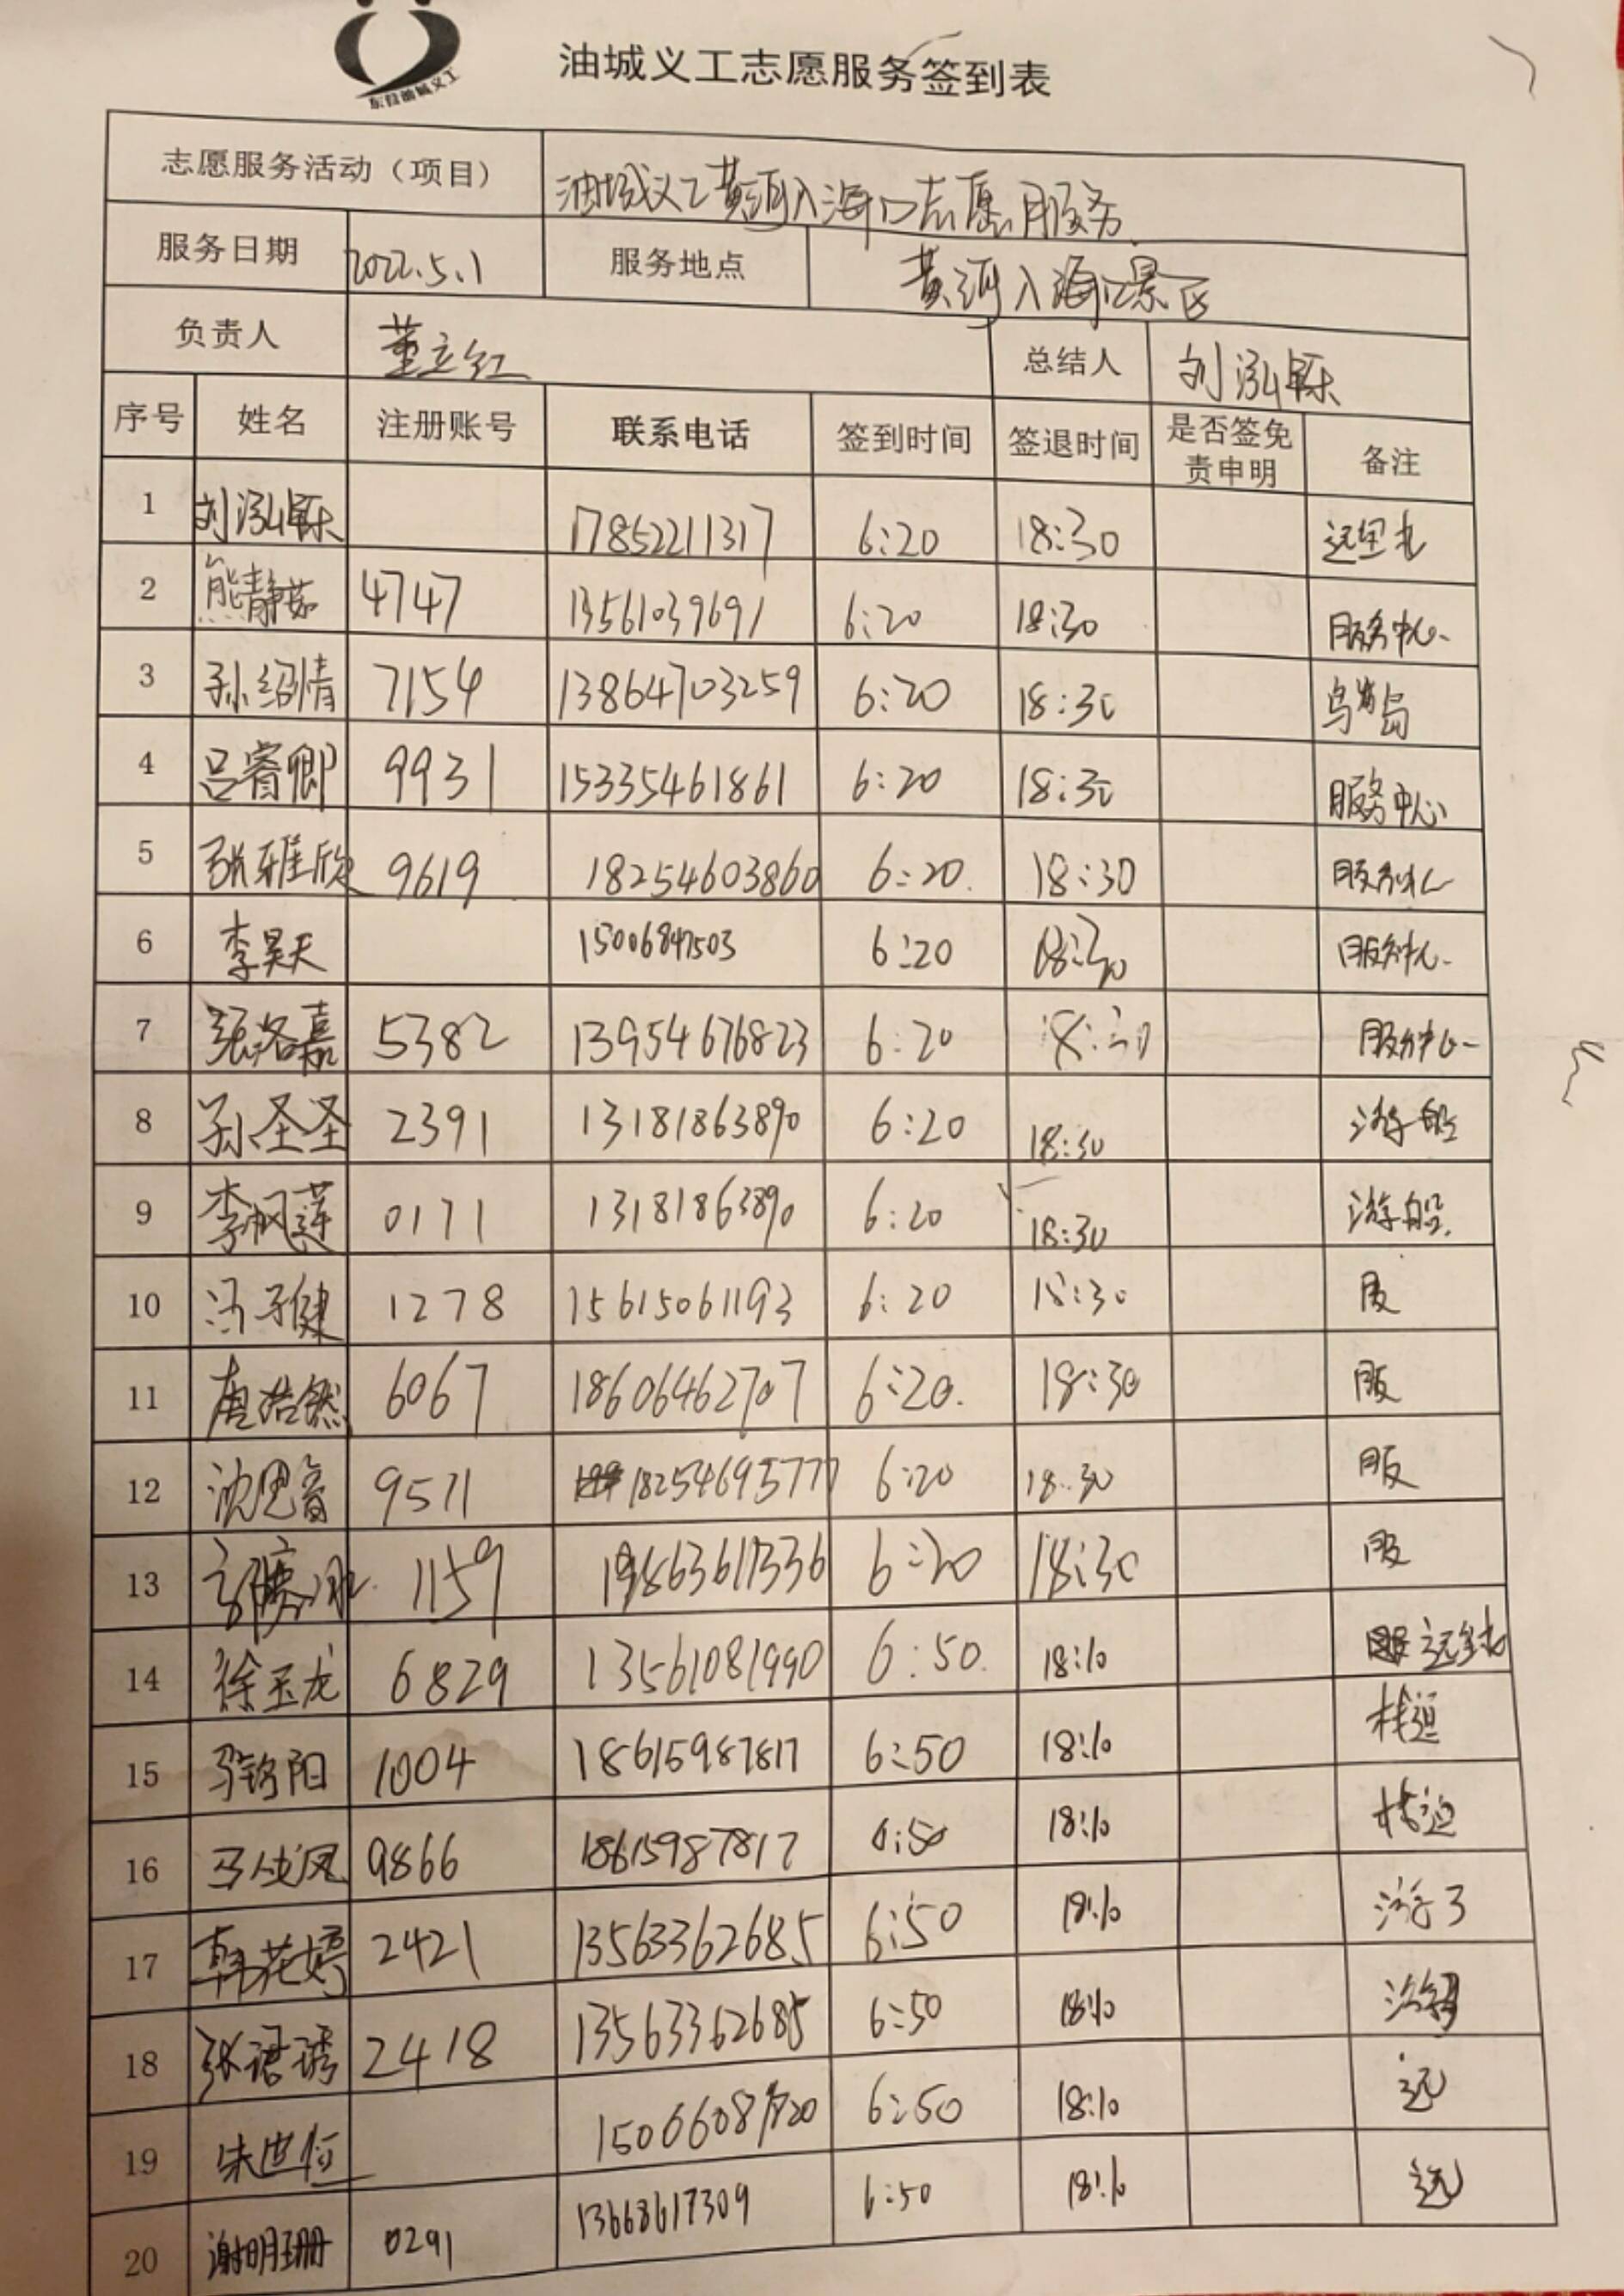 东营油城义工
油城义工志愿服务签到表
志愿服务活动（项目） 油城义工黄河入海口志愿服务
服务日期 2022.5.1 服务地点 黄河入海口景区
负责人 董立红 总结人 刘泓铄
序号 姓名 注册账号 联系电话 签到时间 签退时间 是否签免责申明 备注
1 刘泓铄 17852211317 6:20 18:30
2 熊静茹 4747 13561039691 6:20 18:30 服务中心
3 孙绍情 7154 13864703259 6:20 18:30 鸟岛
4 吕睿卿 9931 15335461861 6:20 18:30 服务中心
5 张雅欣 9619 18254603860 6:20 18:30 服务中心
6 李昊天 15006847503 6:20 18:30 服务中心
7 张洛嘉 5382 13954676823 6:20 18:30 服务中心
8 孙圣圣 2391 13181863890 6:20 18:30 游船
9 李帆莲 0171 13181863890 6:20 18:30 游船
10 冯子健 1278 15615061193 6:20 18:30 服
11 唐浩然 6067 18606462707 6:20 18:30 服
12 沈思睿 9511 18254695777 6:20 18:30 服
13 1159 19863617336 6:20 18:30 服
14 徐玉龙 6829 13561081990 6:50 18:10
15 马铭阳 1004 18615987817 6:50 18:10 栈道
16 9866 18615987817 6:50 18:10 栈道
17 韩花婷 2421 13563362685 6:50 18:10
18 张语诱 2418 13563362685 6:50 18:10
19 朱世俭 6:50 18:10 远
20 谢明珊 0291 13668617309 6:50 18:10 远